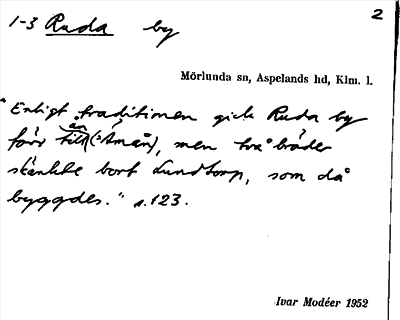 1-3 Ruda by
2
Mörlunda sn, Aspelands hd, Klm. l.
"Enligt traditionen gick Ruda by
förr till ån (= Åmån), men två bröder
skänkte bort Lundtorp, som då
byggdes." s. 123.
Ivar Modéer 1952